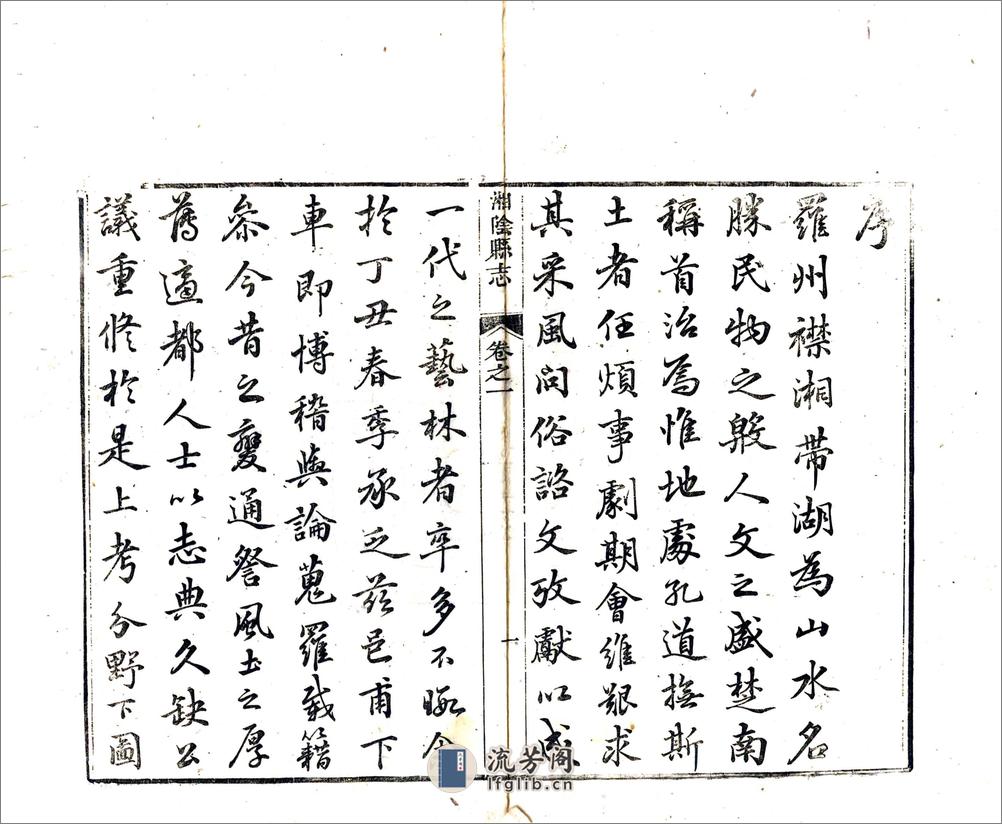 序
羅州襟湘帶湖為山水名
勝民物之殷人文之盛楚南
稱首治為惟地處孔道撫斯
土者任煩事劇期會維艱求
其采風問俗諮文攷獻以成
湘陰縣志 卷之一 一
一代之藝林者率多不暇余
於丁丑春季承乏茲邑甫下
車即博稽輿論蒐羅載籍
叅今昔之變通詧風土之厚
薄適都人士以志典久缺公
議重修於是上考分野下圖
流芳阁
lfglib.cn